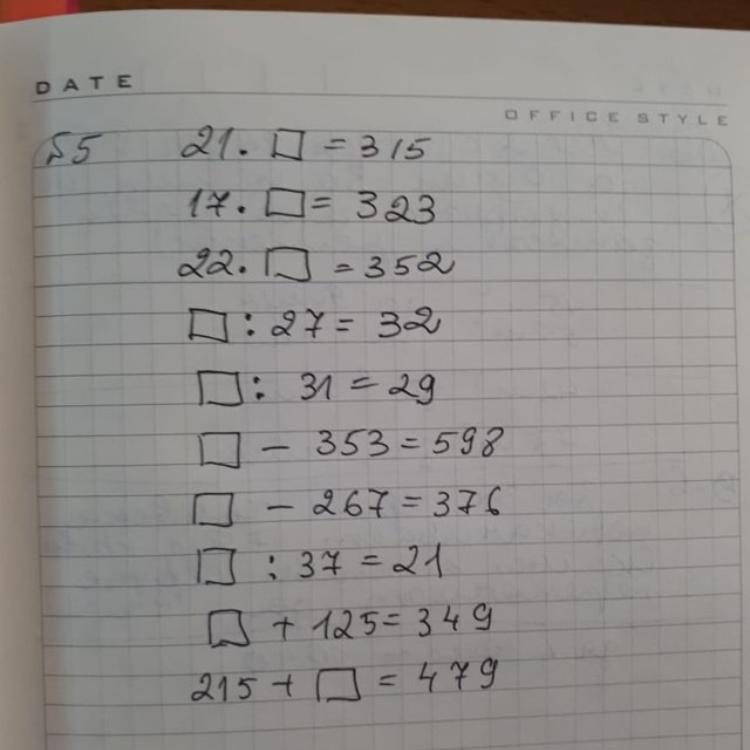 DATE
OFFICE STYLE
№5 21 · □ = 315
17 · □ = 323
22 · □ = 352
□ : 27 = 32
□ : 31 = 29
□ – 353 = 598
□ – 267 = 376
□ : 37 = 21
□ + 125 = 349
215 + □ = 479